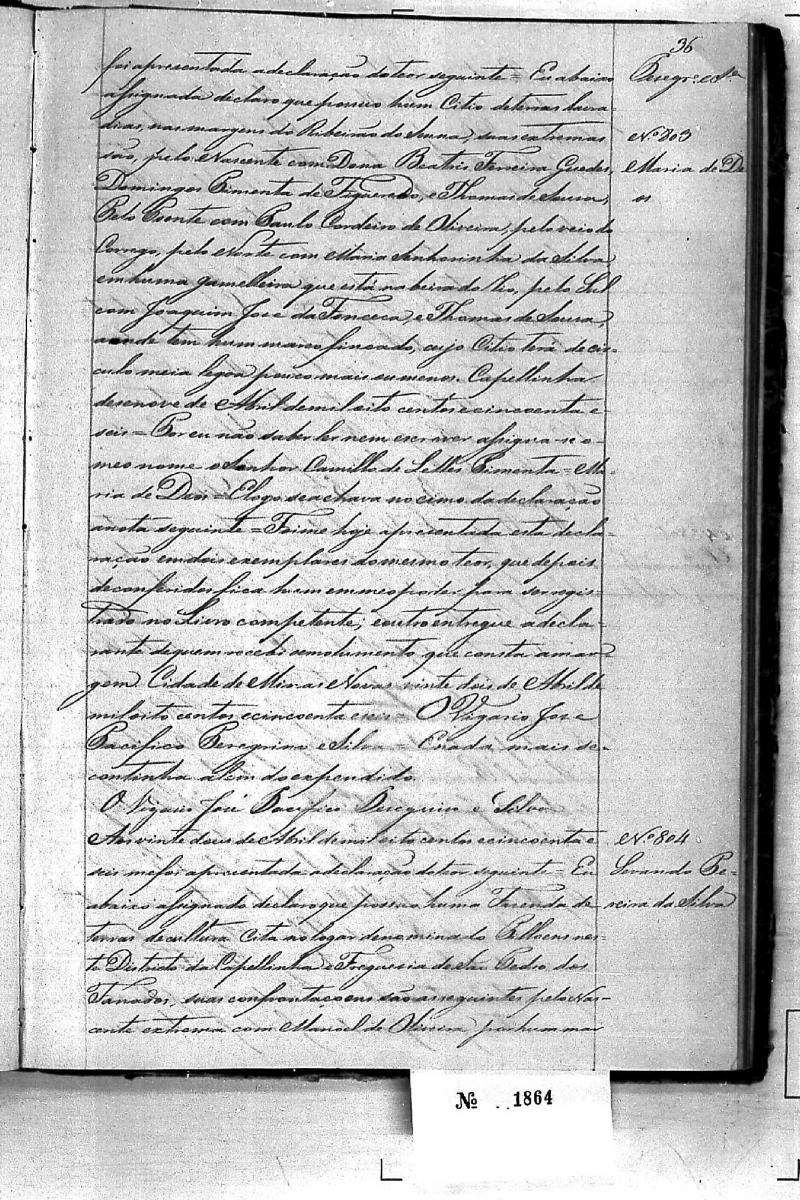 36
foi apresentada a declaração do teor seguinte = Eu abaixo
assignada declaro que possuo hum Citio de terras lavra-
dias, nas margens do Ribeirão do Sena, suas extremas
são, pelo Nascente com Dona Beatris Ferreira Guedes,
Domingos Pimenta de Figueredo, e Thomas de Sousa,
Pelo Poente com Paulo Cordeiro de Oliveira, pelo veio do
Corrego, pelo Norte com Maria Senhorinha da Silva
em huma gamelleira que está na beira do Rio, pelo Sul
com Joaquim José da Fonceca, e Thomas de Sousa,
aonde tem hum marco fincado, cujo Citio terá de cir-
culo meia legoa pouco mais ou menos. Capellinha
desenove de Abril de mil oito centos e cincoenta e
seis = Por eu não saber ler nem escrever assigna-se o
meo nome o Senhor Camillo de Lelles Pimenta = Ma-
ria de Deos = E logo se achava no cimo da declaração
a nota seguinte = Foi me hoje apresentada esta decla-
ração em dois exemplares do mesmo teor, que depois
de conferidos fica hum em meo poder para ser regis-
trado no Livro competente, e outro entregue a decla-
rante de quem recebi emolumento que consta a mar-
gem. Cidade de Minas Novas vinte dois de Abril de
mil oito centos e cincoenta e seis = O Vigario José
Pacifico Peregrino e Silva = E nada mais se
continha alem do expendido.
O Vigario José Pacifico Peregrino e Silva
Aos vinte dous de Abril de mil oito centos e cincoenta e
seis me foi apresentada a declaração do teor seguinte = Eu
abaixo assignado declaro que possuo huma Fazenda de
terras de cultura Cita no logar denominado nes-
te Districto da Capellinha e Freguesia de São Pedro dos
Fanados, suas confrontacoens são as seguintes pelo Nas-
cente extrema com Manoel de Oliveira por hum mar
Peregr.º e S.ª
Nº 803
Maria de De
os
Nº 804
Pe-
reira da Silva
Nº 1864